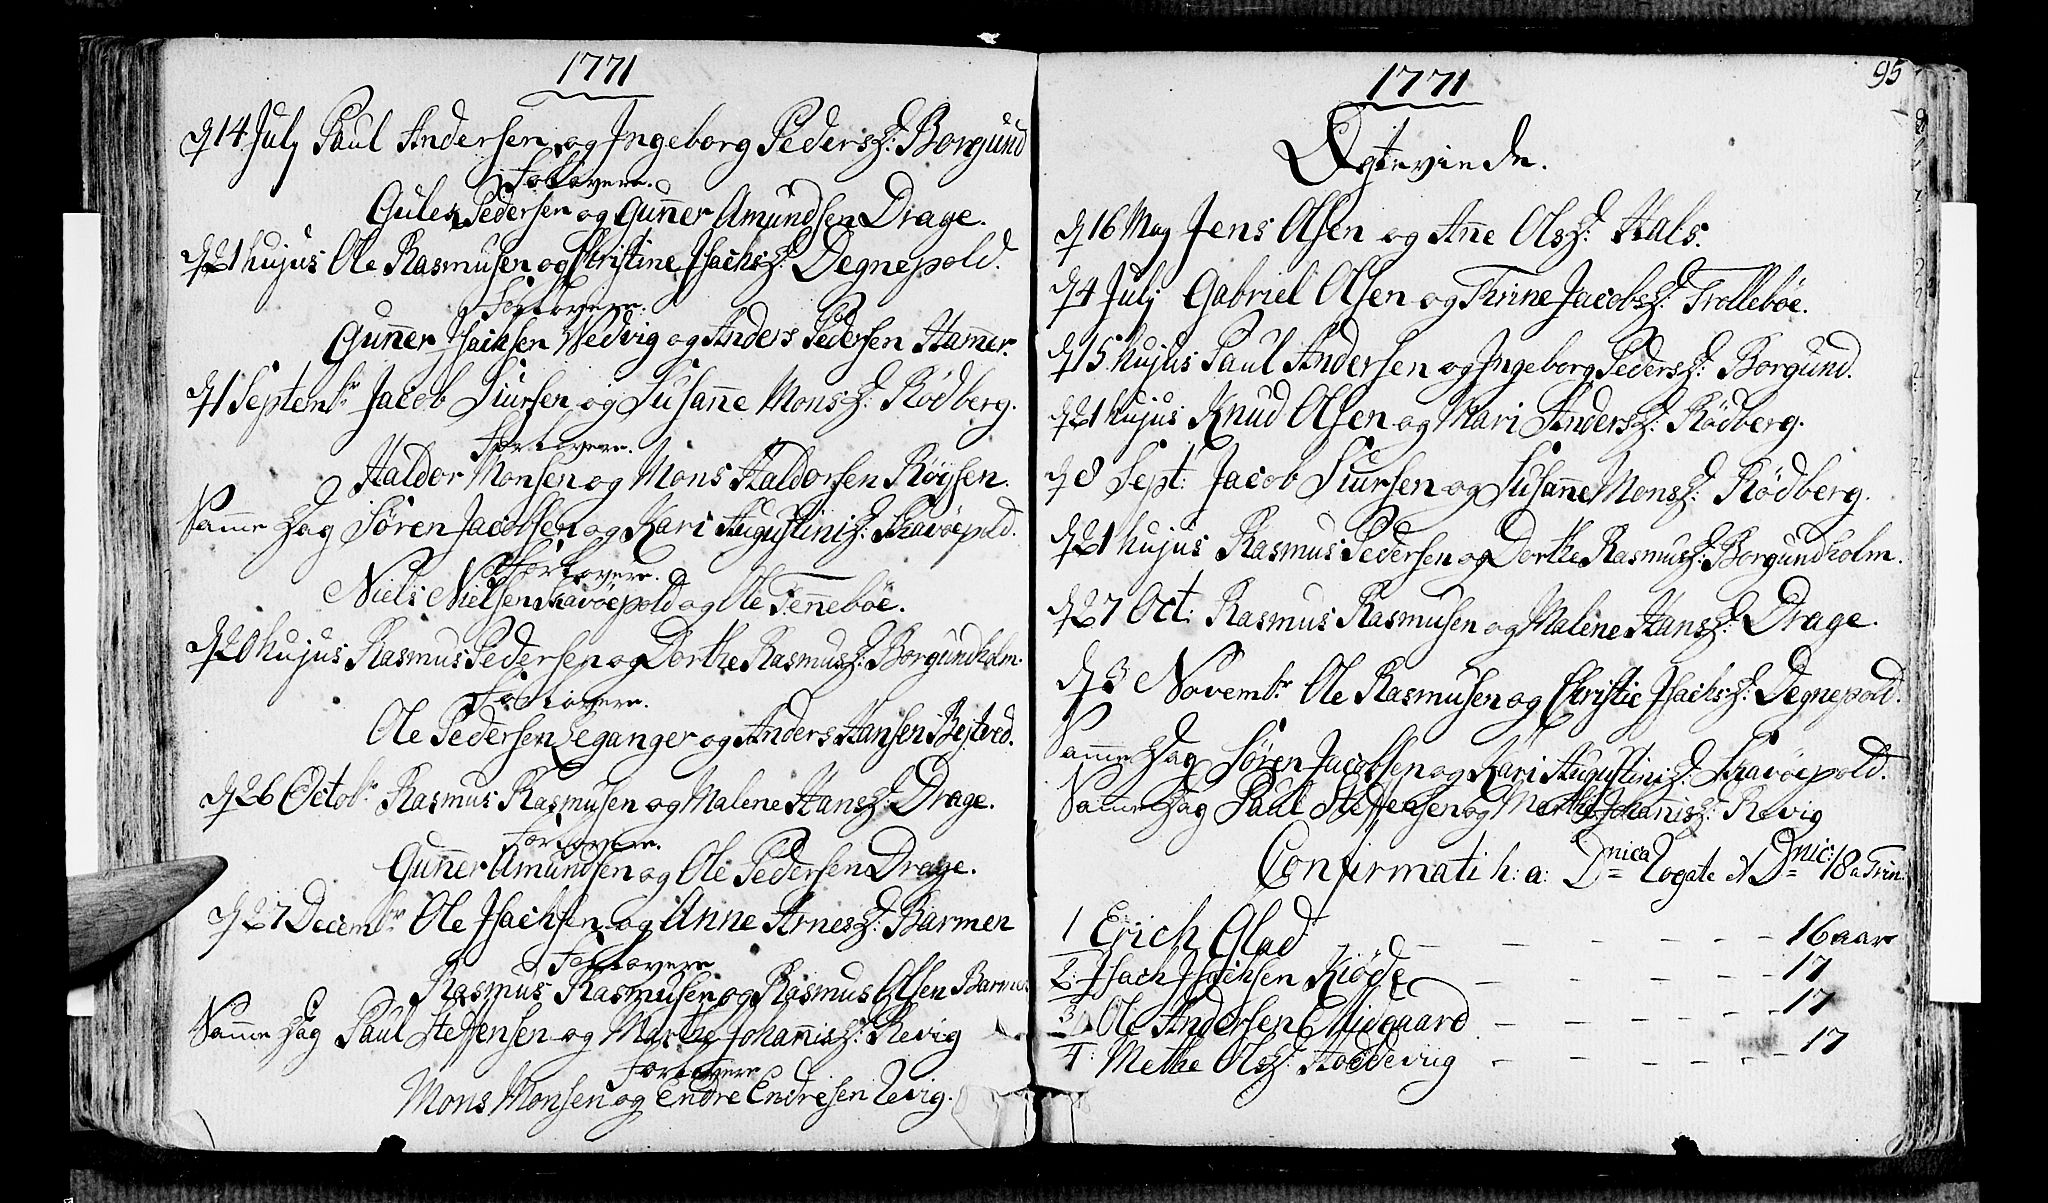 1771
d 14 July Paul Andersen og Ingeborg Pedersd: Borgund
Forlovere.
Gules Pedersen og Guñer Amundsen Drage.
d 21 hujus Ole Rasmusen og Christine Isachsd: Degnepold.
Forlovere.
Guñer Isachsen Wedvig og Anders Pedersen Ham̃er.
d 1 Septembr Jacob Siursen og Susañe Monsd: Rödberg.
Forlovere.
Haldor Monsen og Mons Haldorsen Röysen.
Sam̃e Dag Sören Jacobsen og Kari Augustinid: Skavöepold.
Forlovere.
Niels Nielsen Skavöepold og Ole Teñeböe.
d 20 hujus Rasmus Pedersen og Dorthe Rasmusd: Borgundholm.
Forlovere.
Ole Pedersen Leganger og Anders Hansen
d 26 Octobr Rasmus Rasmusen og Malene Hansd: Drage.
Forlovere.
Guñer Amundsen og Ole Pedersen Drage.
d 27 Decembr Ole Isachsen og Anne Arnesd: Barmen
Forlovere
Rasmus Rasmusen og Rasmus Olsen Barmen
Sam̃e Dag Paul Steffensen og Marthe Johañisd: Revig
Forlovere
Mons Monsen og Endre Endresen Revig.
95
1771
Ægteviede.
d 16 May Jens Olsen og Añe Olsd: Hals.
d 4 July Gabriel Olsen og Trine Jacobsd: Trolleböe.
d 15 hujus Paul Andersen og Ingeborg Pedersd: Borgund.
d 21 hujus Knud Olsen og Mari Andersd: Rödberg.
d 8 Sept: Jacob Siursen og Susañe Monsd: Rödberg.
d 21 hujus Rasmus Pedersen og Dorthe Rasmusd: Borgundholm.
d 27 Oct: Rasmus Rasmusen og Malene Hansd: Drage.
d 3 Novembr Ole Rasmusen og Christie Isachsd: Degnepold.
Sam̃e Dag Sören Jacobsen og Kari Augustinid: Skavöepold.
Sam̃e Dag Paul Steffensen og Marthe Johañisd: Revig
Confirmati h: a: Dnica Rogate et Dnic: 18 a Trin:
1 Erich Glad - - - - - 16 aar
2: Isach Isachsen Kiöde - - - - 17
3 Ole Andersen Midgaard - - - - 17
4: Methe Olsd: Hoddeviig - - - - 17